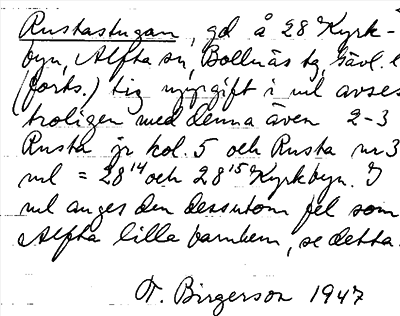 Rustastugan, gd å 28 Kyrk-
byn, Alfta sn, Bollnäs tg, Gävl. l
(forts.) tig uppgift i ml avses
troligen med denna även 2-3
Rusta jr kol. 5 och Rusta nr 3
ml = 28¹⁴ och 28¹⁵ Kyrkbyn. I
ml anges den dessutom fel som
Alfta lilla barnhem, se detta.
T. Birgerson 1947